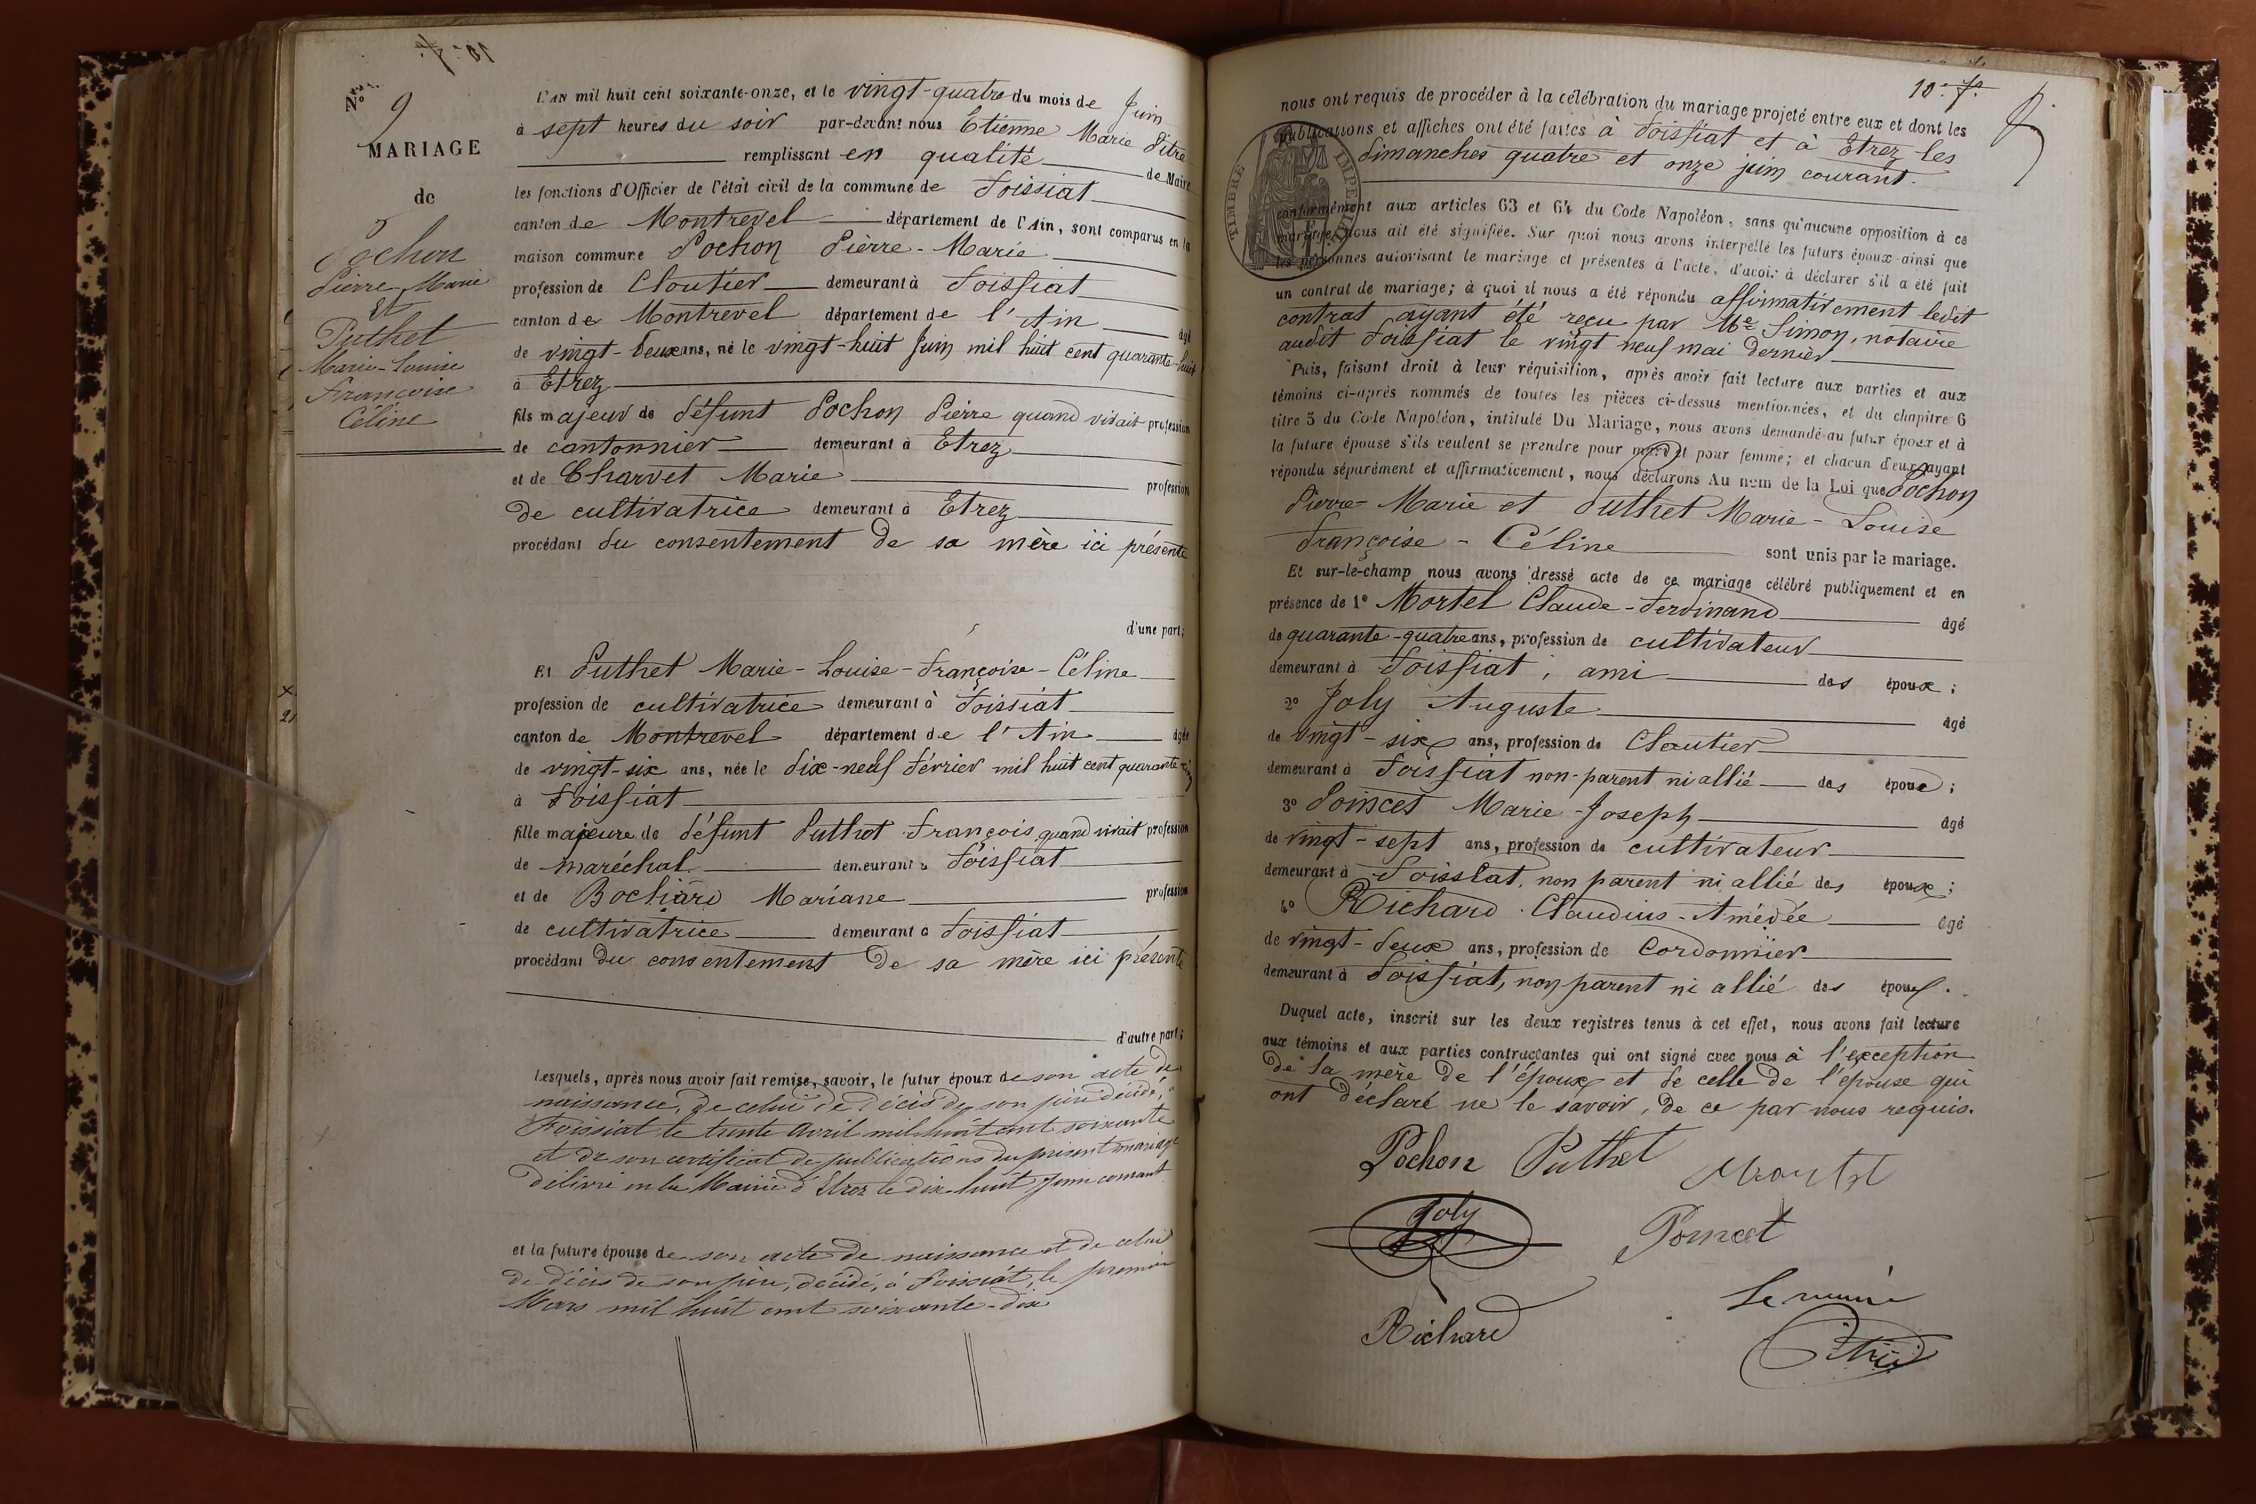 N° 9
MARIAGE
de
Pochon
Pierre Marie
Et
Puthet
Marie-Louise
Françoise
Céline
L'AN mil huit cent soixante-onze, et le vingt-quatre du mois de Juin
à sept heures du soir par-devant nous Etienne Marie Pitre
remplissant en qualité de Maire
les fonctions d'Officier de l'état civil de la commune de Foissiat
canton de Montrevel département de l'Ain, sont comparus en la
maison commune Pochon Pierre-Marie
profession de Cloutier demeurant à Foissiat
canton de Montrevel département de l'Ain âgé
de vingt-deux ans, né le vingt-huit Juin mil huit cent quarante-huit
à Etrez
fils majeur de défunt Pochon Pierre quand vivait profession
de cantonnier demeurant à Etrez
et de Charvet Marie profession
de cultivatrice demeurant à Etrez
procédant du consentement de sa mère ici présente
d'une part;
Et Puthet Marie-Louise-Françoise-Céline
profession de cultivatrice demeurant à Foissiat
canton de Montrevel département de l'Ain âgée
de vingt-six ans, née le dix-neuf Février mil huit cent quarante
à Foissiat
fille majeure de défunt Puthet François quand vivait profession
de maréchal demeurant à Foissiat
et de Bochard Mariane profession
de cultivatrice demeurant à Foissiat
procédant du consentement de sa mère ici présente
d'autre part;
Lesquels, après nous avoir fait remise, savoir, le futur époux de son acte de
naissance, de celui de décès de son père décédé, à
Foissiat le trente Avril mil huit cent soixante
et de son certificat de publications du présent mariage
délivré en la Mairie d'Etrez le dix-huit Juin courant
et la future épouse de son acte de naissance et de celui
de décès de son père, décédé, à Foissiat, le premier
Mars mil huit cent soixante-dix
10e f.
nous ont requis de procéder à la célébration du mariage projeté entre eux et dont les
publications et affiches ont été faites à Foissiat et à Etrez les
dimanches quatre et onze juin courant.
TIMBRE IMPERIAL
conformément aux articles 63 et 64 du Code Napoléon, sans qu'aucune opposition à ce
mariage nous ait été signifiée. Sur quoi nous avons interpellé les futurs époux ainsi que
les personnes autorisant le mariage et présentes à l'acte, d'avoir à déclarer s'il a été fait
un contrat de mariage; à quoi il nous a été répondu affirmativement ledit
contrat ayant été reçu par Me Simon, notaire
audit Foissiat le vingt neuf mai dernier
Puis, faisant droit à leur réquisition, après avoir fait lecture aux parties et aux
témoins ci-après nommés de toutes les pièces ci-dessus mentionnées, et du chapitre 6
titre 5 du Code Napoléon, intitulé Du Mariage, nous avons demandé au futur époux et à
la future épouse s'ils veulent se prendre pour mari et pour femme; et chacun d'eux ayant
répondu séparément et affirmativement, nous déclarons Au nom de la Loi que Pochon
Pierre-Marie et Puthet Marie-Louise
Françoise-Céline sont unis par le mariage.
Et sur-le-champ nous avons dressé acte de ce mariage célébré publiquement et en
présence de 1° Mortel Claude-Ferdinand âgé
de quarante-quatre ans, profession de cultivateur
demeurant à Foissiat, ami des époux;
2° Joly Auguste âgé
de vingt-six ans, profession de Cloutier
demeurant à Foissiat non-parent ni allié des époux;
3° Poincet Marie-Joseph âgé
de vingt-sept ans, profession de cultivateur
demeurant à Foissiat, non parent ni allié des époux;
4° Richard Claudius-Amédée âgé
de vingt-deux ans, profession de Cordonnier
demeurant à Foissiat, non parent ni allié des époux.
Duquel acte, inscrit sur les deux registres tenus à cet effet, nous avons fait lecture
aux témoins et aux parties contractantes qui ont signé avec nous à l'exception
de la mère de l'époux et de celle de l'épouse qui
ont déclaré ne le savoir, de ce par nous requis.
Pochon Puthet
Joly
Poincet
Richard
Le maire
Pitre